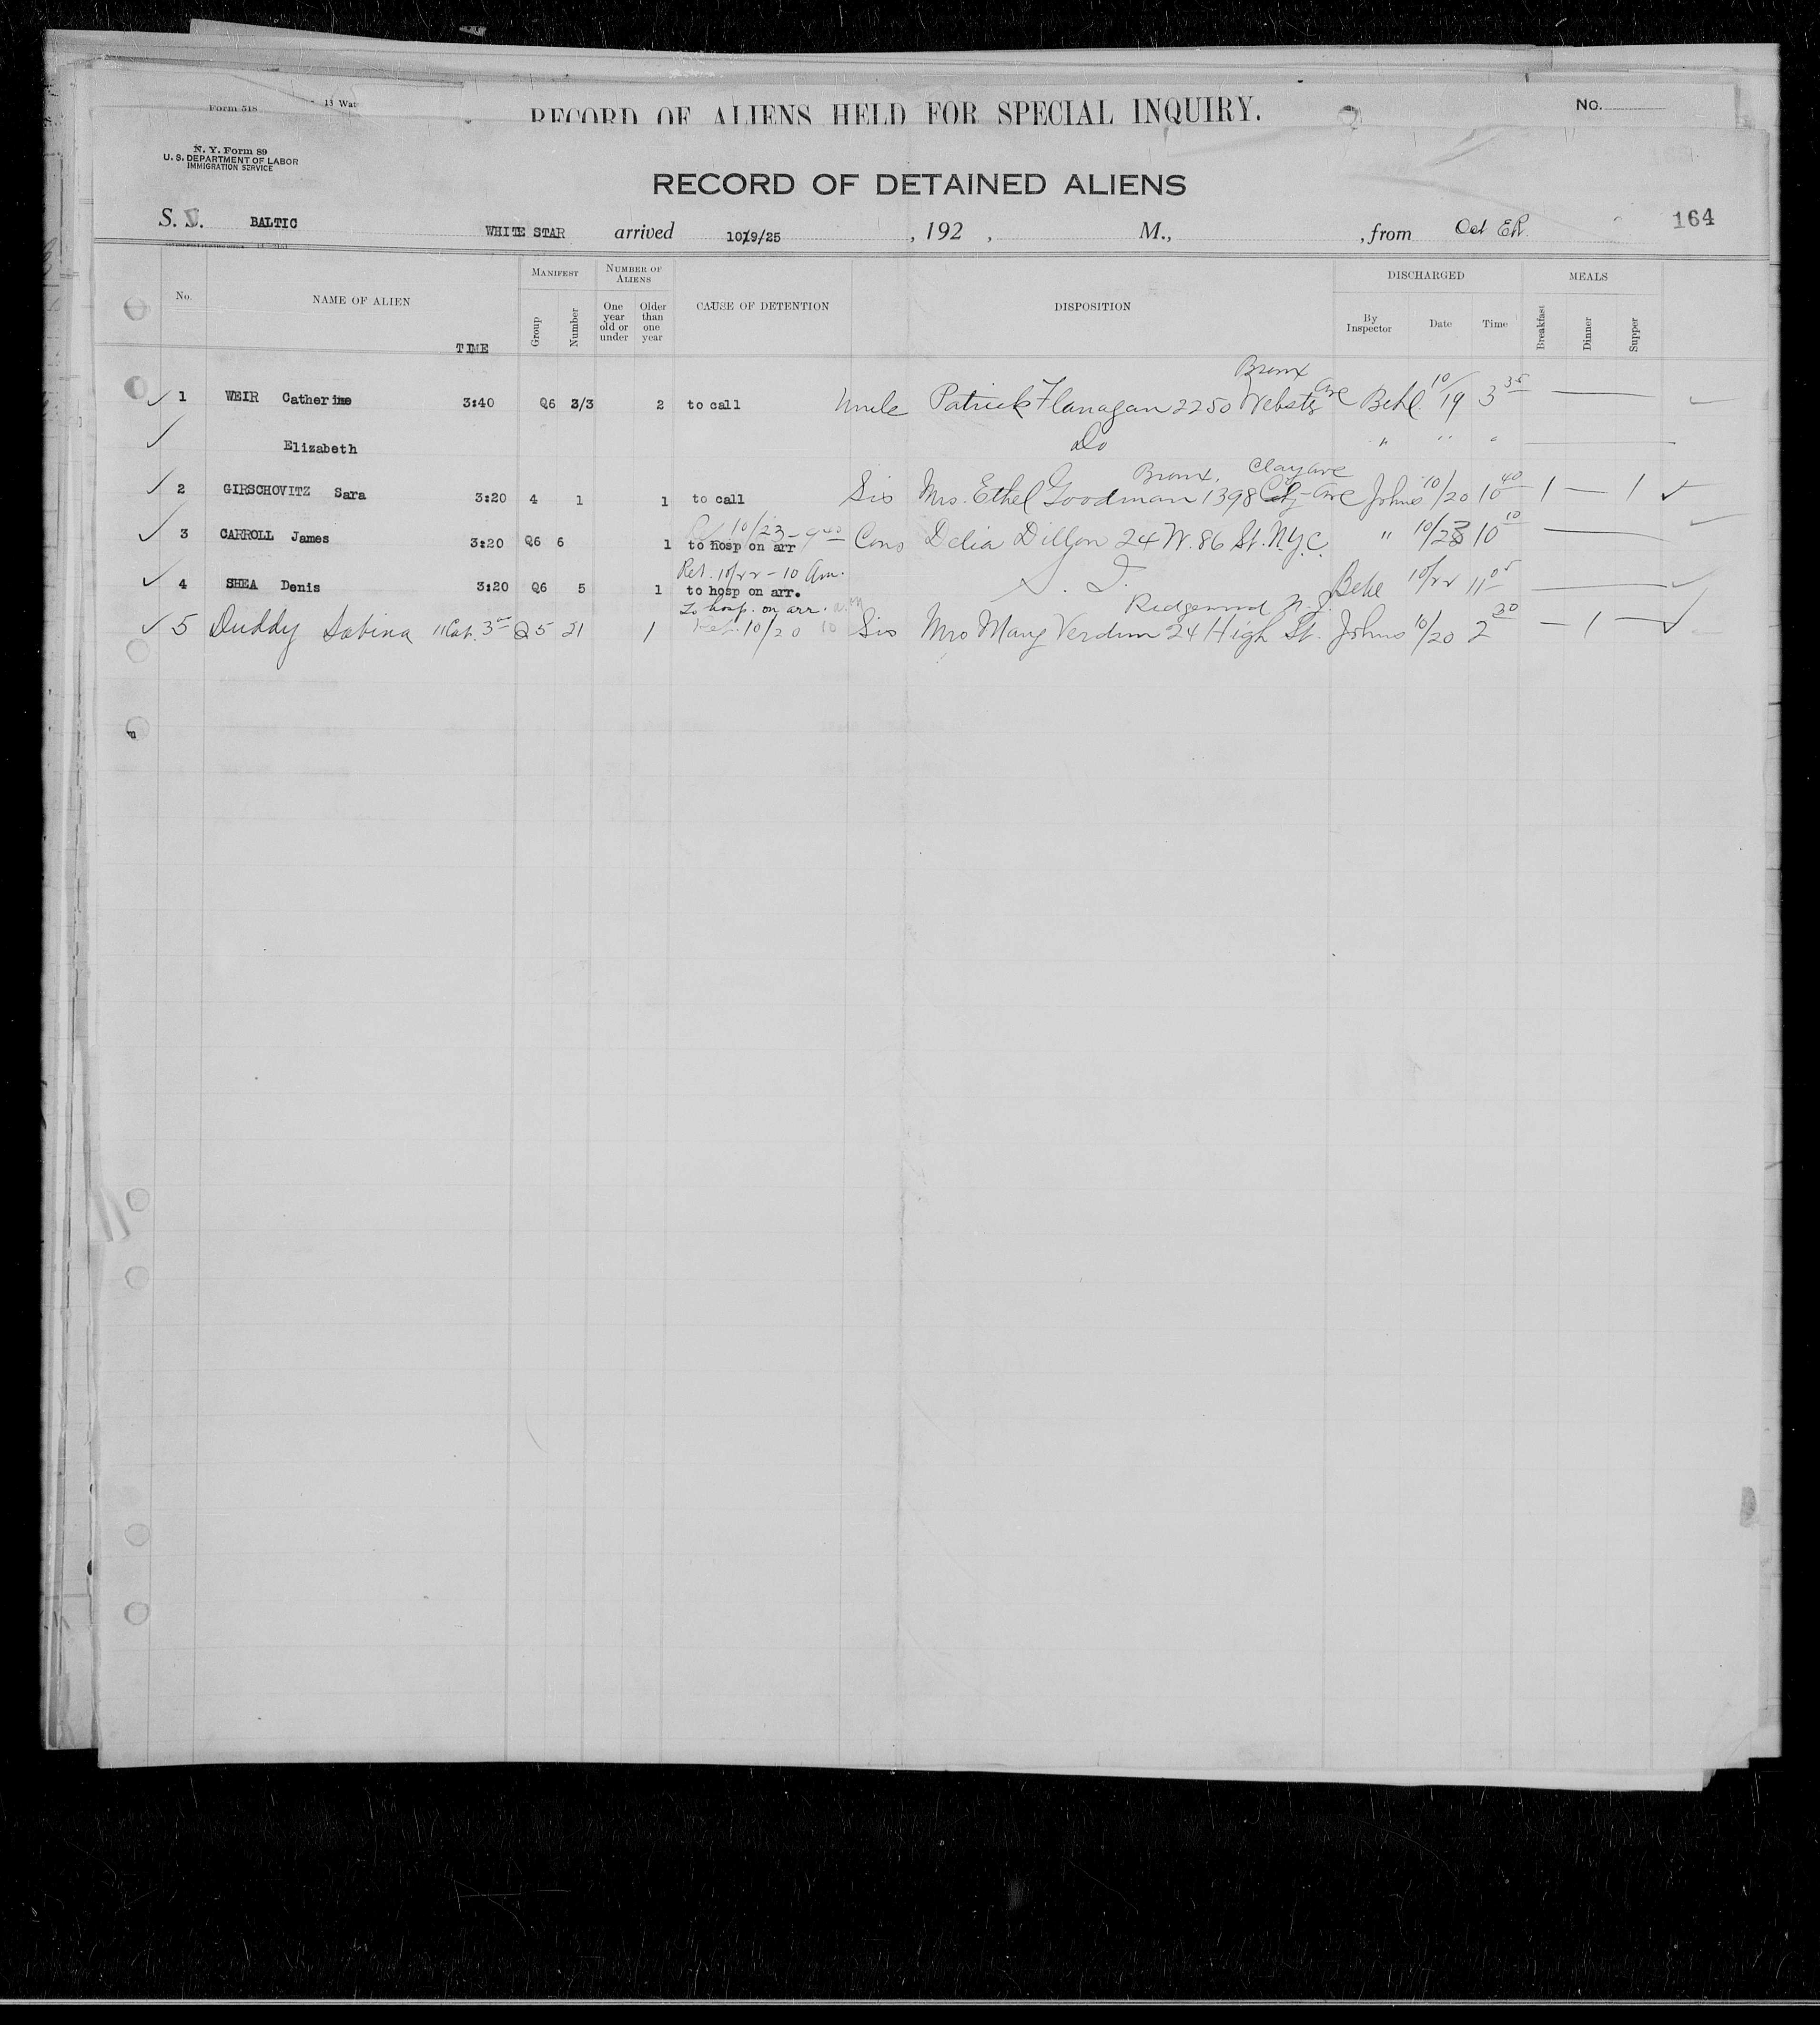 Form 518
13 Wat
RECORD OF ALIENS HELD FOR SPECIAL INQUIRY.
No.
N. Y. Form 89
U. S. DEPARTMENT OF LABOR
IMMIGRATION SERVICE
RECORD OF DETAINED ALIENS
S. S. BALTIC WHITE STAR arrived 10/19/25, 192 , M., , from 164
No. NAME OF ALIEN TIME MANIFEST Group Number NUMBER OF ALIENS One year old or under Older than one year CAUSE OF DETENTION DISPOSITION DISCHARGED By Inspector Date Time MEALS Breakfast Dinner Supper
Bronx
1 WEIR Catherine 3:40 Q6 2/3 2 to call Uncle Patrick Flanagan 2250 Webster Ave Behl 10/19 3 35
Elizabeth Do " " "
Bronx, Clay Ave
2 GIRSCHOVITZ Sara 3:20 4 1 1 to call Sis Mrs. Ethel Goodman 1398 Ave Johns 10/20 10 40 1 — 1
10/23 - 9 40
3 CARROLL James 3:20 Q6 6 1 to hosp on arr Cous Delia Dillon 24 W. 86 St. N.Y.C. " 10/23 10 10
Ret. 10/22 - 10 Am.
4 SHEA Denis 3:20 Q6 5 1 to hosp on arr. S. I. Behl 10/22 11 05
To hosp. on arr. Ridgewood N.J.
5 Duddy Sabina II Cab. 3 Q5 21 1 Ret. 10/20 10 Sis Mrs Mary Verdun 24 High St. Johns 10/20 2 30 — 1 —